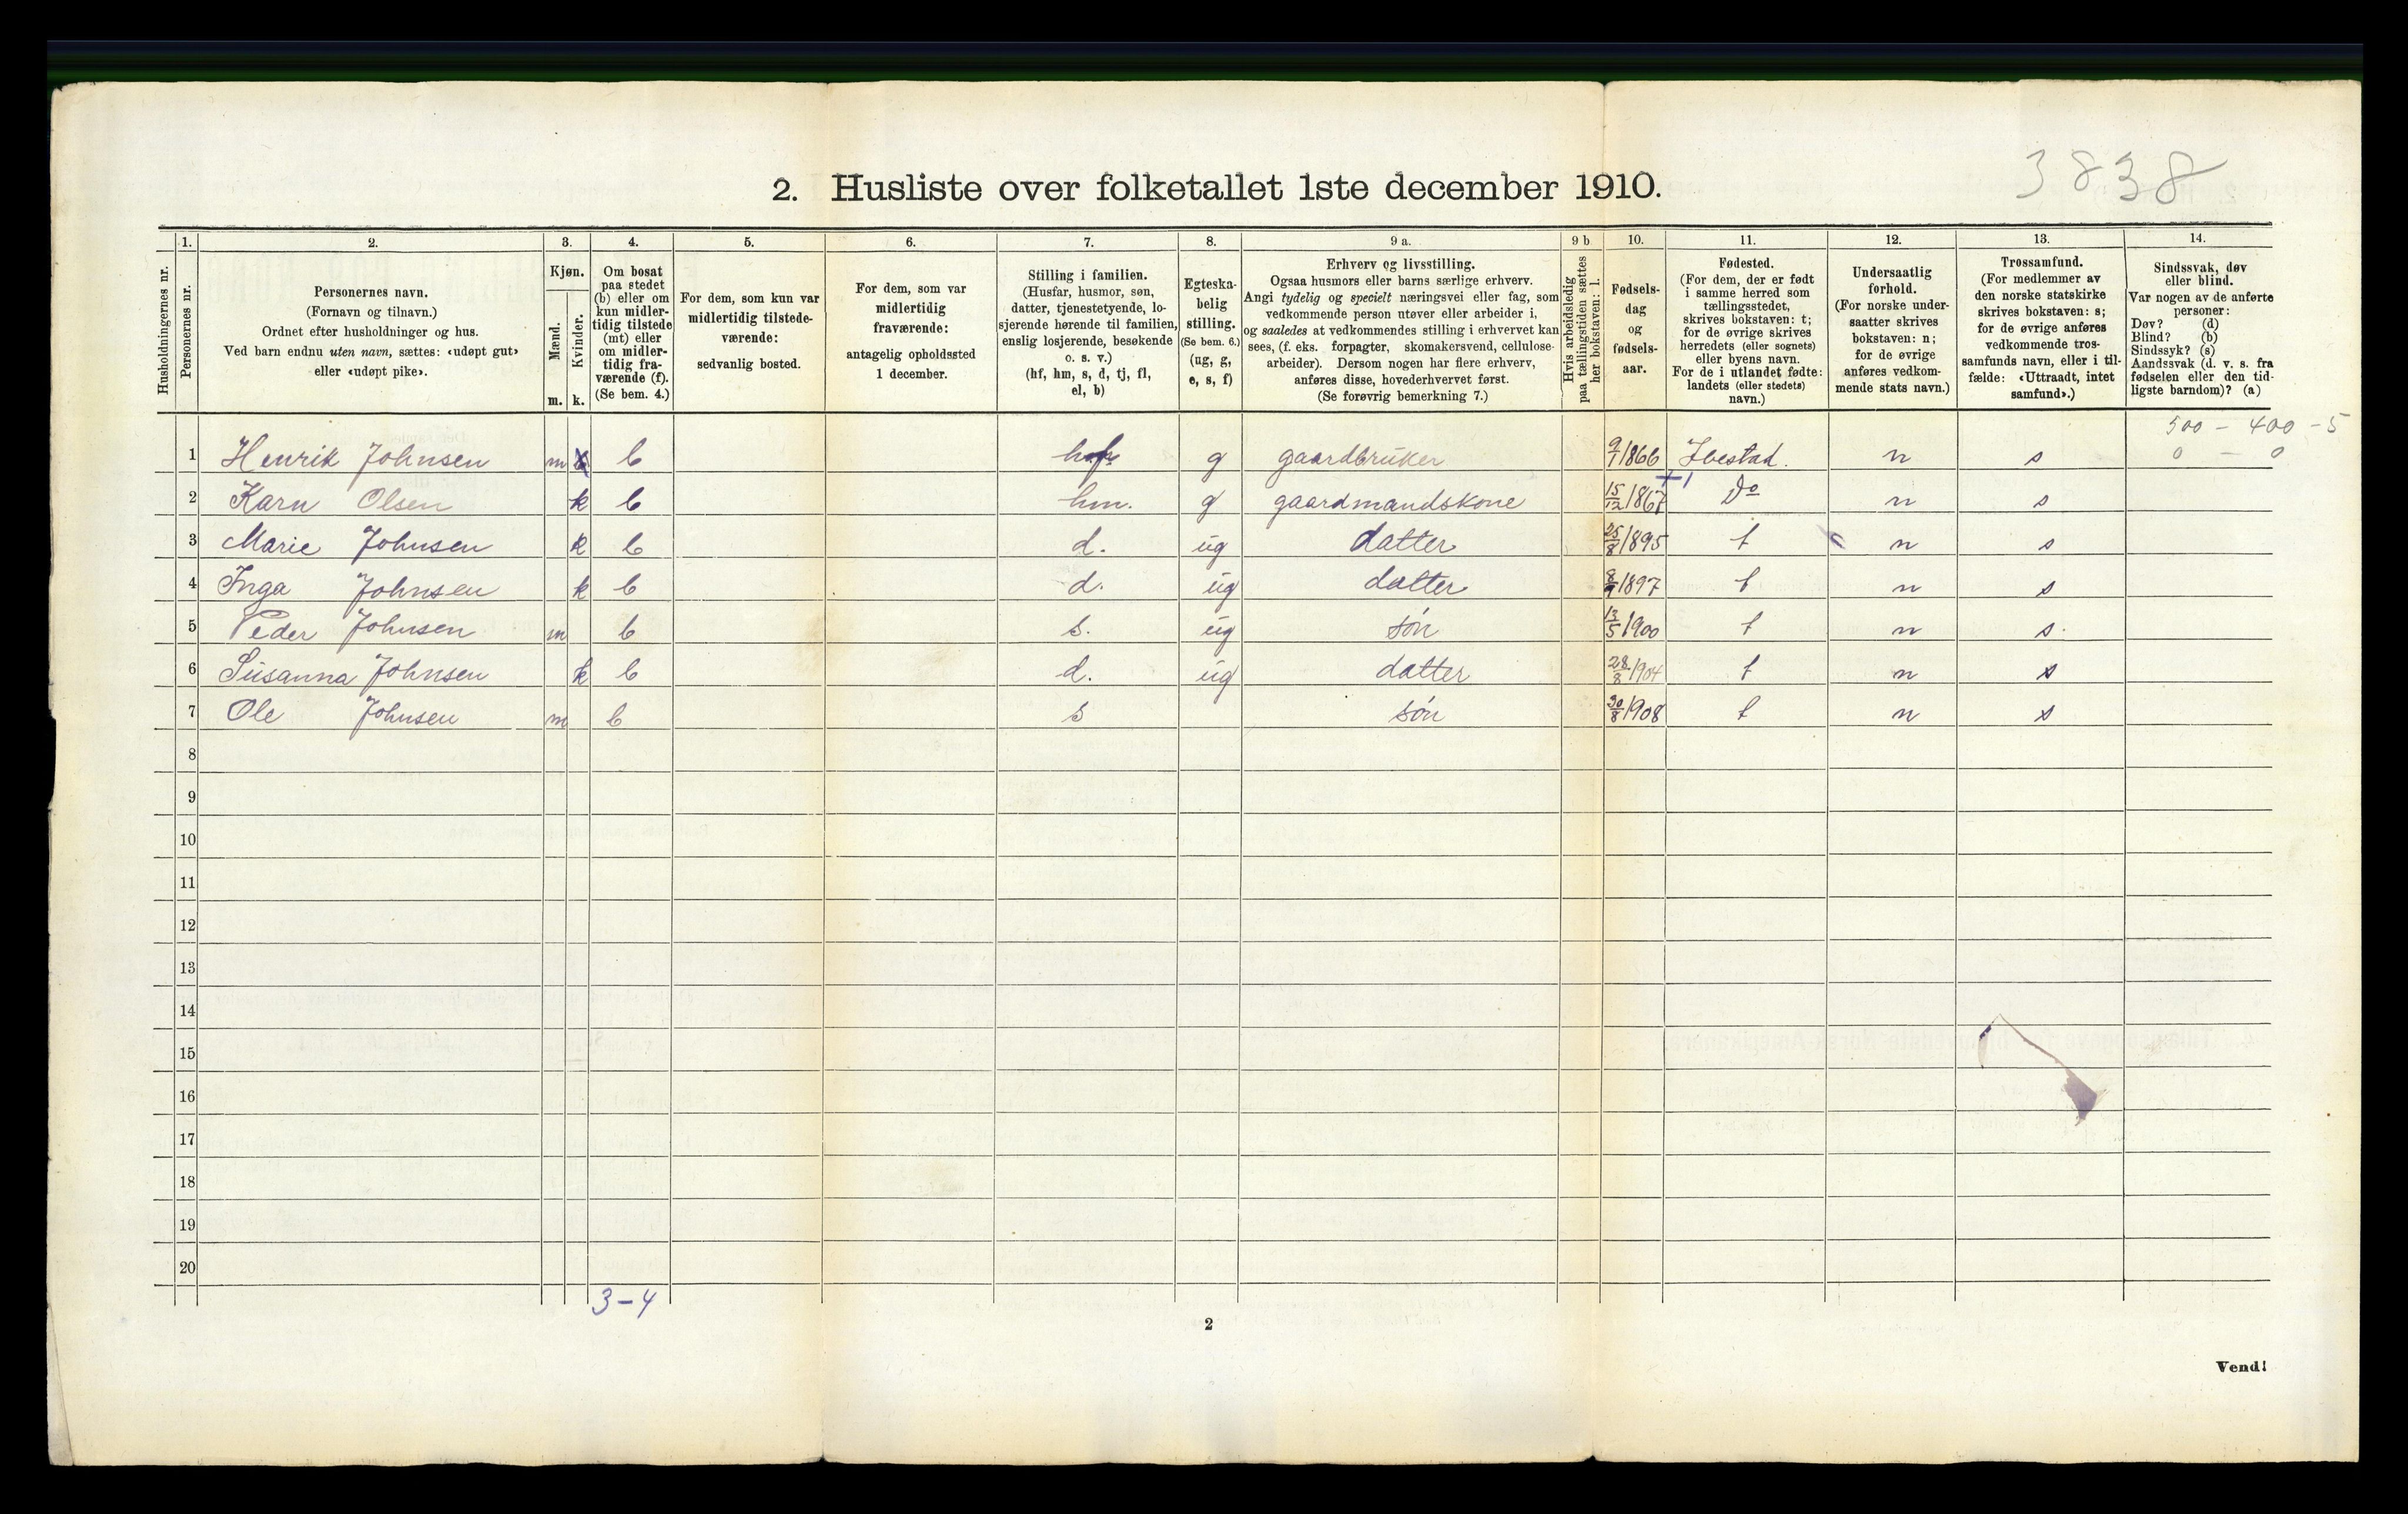 3838
2. Husliste over folketallet 1ste december 1910.
1. 2. 3. 4. 5. 6. 7. 8. 9 a. 9 b 10. 11. 12. 13. 14.
Husholdningernes nr.
Personernes nr.
Personernes navn.
(Fornavn og tilnavn.)
Ordnet efter husholdninger og hus.
Ved barn endnu uten navn, sættes: «udøpt gut»
eller «udøpt pike».
Kjøn.
Mænd.
Kvinder.
m. k.
Om bosat
paa stedet
(b) eller om
kun midler-
tidig tilstede
(mt) eller
om midler-
tidig fra-
værende (f).
(Se bem. 4.)
For dem, som kun var
midlertidig tilstede-
værende:
sedvanlig bosted.
For dem, som var
midlertidig
fraværende:
antagelig opholdssted
1 december.
Stilling i familien.
(Husfar, husmor, søn,
datter, tjenestetyende, lo-
sjerende hørende til familien,
enslig losjerende, besøkende
o. s. v.)
(hf, hm, s, d, tj, fl,
el, b)
Egteska-
belig
stilling.
(Se bem. 6.)
(ug, g,
e, s, f)
Erhverv og livsstilling.
Ogsaa husmors eller barns særlige erhverv.
Angi tydelig og specielt næringsvei eller fag, som
vedkommende person utøver eller arbeider i,
og saaledes at vedkommendes stilling i erhvervet kan
sees, (f. eks. forpagter, skomakersvend, cellulose-
arbeider). Dersom nogen har flere erhverv,
anføres disse, hovederhvervet først.
(Se forøvrig bemerkning 7.)
Hvis arbeidsledig
paa tællingstiden sættes
her bokstaven: l.
Fødsels-
dag
og
fødsels-
aar.
Fødested.
(For dem, der er født
i samme herred som
tællingsstedet,
skrives bokstaven: t;
for de øvrige skrives
herredets (eller sognets)
eller byens navn.
For de i utlandet fødte:
landets (eller stedets)
navn.)
Undersaatlig
forhold.
(For norske under-
saatter skrives
bokstaven: n;
for de øvrige
anføres vedkom-
mende stats navn.)
Trossamfund.
(For medlemmer av
den norske statskirke
skrives bokstaven: s;
for de øvrige anføres
vedkommende tros-
samfunds navn, eller i til-
fælde: «Uttraadt, intet
samfund».)
Sindssvak, døv
eller blind.
Var nogen av de anførte
personer:
Døv? (d)
Blind? (b)
Sindssyk? (s)
Aandssvak (d. v. s. fra
fødselen eller den tid-
ligste barndom)? (a)
500 - 400 - 5
0 - 0
1 Henrik Johnsen m b hf g gaardbruker 9/1 1866 Ibestad. n s
2 Karn Olsen k b hm. g gaardmandskone 15/12 1867 Do n s
3 Marie Johnsen k b d. ug datter 25/8 1895 t n s
4 Inga Johnsen k b d. ug datter 8/9 1897 t n s
5 Peder Johnsen m b s. ug søn 13/5 1900 t n s
6 Susanna Johnsen k b d. ug datter 28/8 1904 t n s
7 Ole Johnsen m b s søn 30/8 1908 t n s
8
9
10
11
12
13
14
15
16
17
18
19
20
3-4
2
Vend!